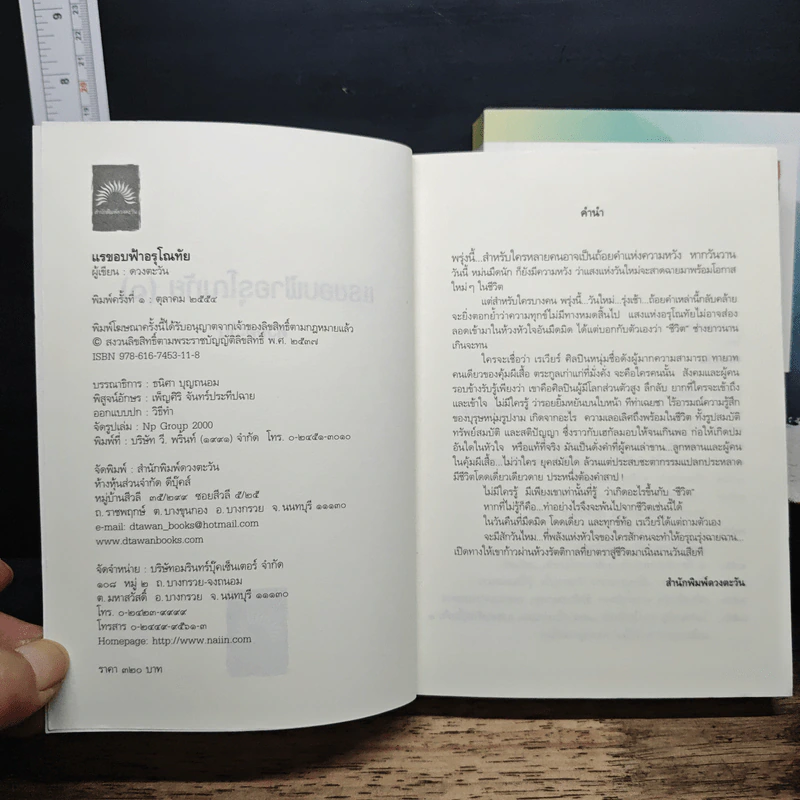 สำนักพิมพ์ดวงตะวัน
แรขอบฟ้าอรุโณทัย
ผู้เขียน : ดวงตะวัน
พิมพ์ครั้งที่ ๑ : ตุลาคม ๒๕๕๔
พิมพ์โฆษณาครั้งนี้ได้รับอนุญาตจากเจ้าของลิขสิทธิ์ตามกฎหมายแล้ว
© สงวนลิขสิทธิ์ตามพระราชบัญญัติลิขสิทธิ์ พ.ศ. ๒๕๓๗
ISBN 978-616-7453-11-8
บรรณาธิการ : ธนิศา บุญถนอม
พิสูจน์อักษร : เพ็ญศิริ จันทร์ประทีปฉาย
ออกแบบปก : วิธีทำ
จัดรูปเล่ม : Np Group 2000
พิมพ์ที่ : บริษัท วี. พริ้นท์ (๑๙๙๑) จำกัด โทร. ๐-๒๔๕๑-๓๐๑๐
จัดพิมพ์ : สำนักพิมพ์ดวงตะวัน
ห้างหุ้นส่วนจำกัด ดีบุ๊คส์
หมู่บ้านสีวลี ๓๕/๒๙๙ ซอยสีวลี ๕/๒๕
ถ.ราชพฤกษ์ ต.บางขุนกอง อ.บางกรวย จ.นนทบุรี ๑๑๑๓๐
e-mail: dtawan_books@hotmail.com
www.dtawanbooks.com
จัดจำหน่าย : บริษัทอมรินทร์บุ๊คเซ็นเตอร์ จำกัด
๑๐๘ หมู่ ๒ ถ.บางกรวย-จงถนอม
ต.มหาสวัสดิ์ อ.บางกรวย จ.นนทบุรี ๑๑๑๓๐
โทร. ๐-๒๔๒๓-๙๙๙๙
โทรสาร ๐-๒๔๔๙-๙๕๖๑-๓
Homepage: http://www.naiin.com
ราคา ๓๒๐ บาท
คำนำ
พรุ่งนี้...สำหรับใครหลายคนอาจเป็นถ้อยคำแห่งความหวัง หากวันวาน
วันนี้ หม่นมืดนัก ก็ยังมีความหวัง ว่าแสงแห่งวันใหม่จะสาดฉายมาพร้อมโอกาส
ใหม่ๆ ในชีวิต
แต่สำหรับใครบางคน พรุ่งนี้...วันใหม่...รุ่งเช้า...ถ้อยคำเหล่านี้กลับคล้าย
จะยิ่งตอกย้ำว่าความทุกข์ไม่มีทางหมดสิ้นไป แสงแห่งอรุโณทัยไม่อาจส่อง
ลอดเข้ามาในห้วงหัวใจอันมืดมิด ได้แต่บอกกับตัวเองว่า "ชีวิต" ช่างยาวนาน
เกินจะทน
ใครจะเชื่อว่า เรเวียร์ ศิลปินหนุ่มชื่อดังผู้มากความสามารถ ทายาท
คนเดียวของคุ้มผีเสื้อ ตระกูลเก่าแก่ที่มั่งคั่ง จะคือใครคนนั้น สังคมและผู้คน
รอบข้างรับรู้เพียงว่า เขาคือศิลปินผู้มีโลกส่วนตัวสูง ลึกลับ ยากที่ใครจะเข้าถึง
และเข้าใจ ไม่มีใครรู้ ว่ารอยยิ้มหยันบนใบหน้า ทีท่าเฉยชา ไร้อารมณ์ความรู้สึก
ของบุรุษหนุ่มรูปงาม เกิดจากอะไร ความเลอเลิศถึงพร้อมในชีวิต ทั้งรูปสมบัติ
ทรัพย์สมบัติ และสติปัญญา ซึ่งราวกับเฮกัลมอบให้จนเกินพอ ก่อให้เกิดปม
อันใดในหัวใจ หรือแท้ที่จริง มันเป็นดั่งคำที่ผู้คนเล่าขาน...ลูกหลานและผู้คน
ในคุ้มผีเสื้อ...ไม่ว่าใคร ยุคสมัยใด ล้วนแต่ประสบชะตากรรมแปลกประหลาด
มีชีวิตโดดเดี่ยวเดียวดาย ประหนึ่งต้องคำสาป !
ไม่มีใครรู้ มีเพียงเขาเท่านั้นที่รู้ ว่าเกิดอะไรขึ้นกับ "ชีวิต"
หากที่ไม่รู้ก็คือ...ทำอย่างไรจึงจะพ้นไปจากชีวิตเช่นนี้ได้
ในวันคืนที่มืดมิด โดดเดี่ยว และทุกข์ท้อ เรเวียร์ได้แต่ถามตัวเอง
จะมีสักวันไหม...ที่พลังแห่งหัวใจของใครสักคนจะทำให้อรุณรุ่งฉายฉาน...
เปิดทางให้เขาก้าวผ่านห้วงรัตติกาลที่ยาตราสู่ชีวิตมาเนิ่นนานวันเสียที
สำนักพิมพ์ดวงตะวัน